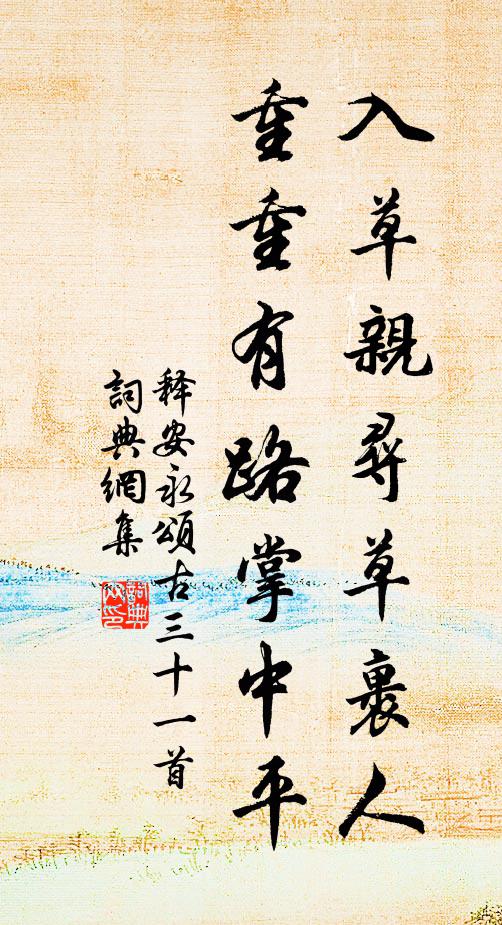 入草親尋草裹人
重重有路掌中平
釋安永頌古三十一首
詞典網集